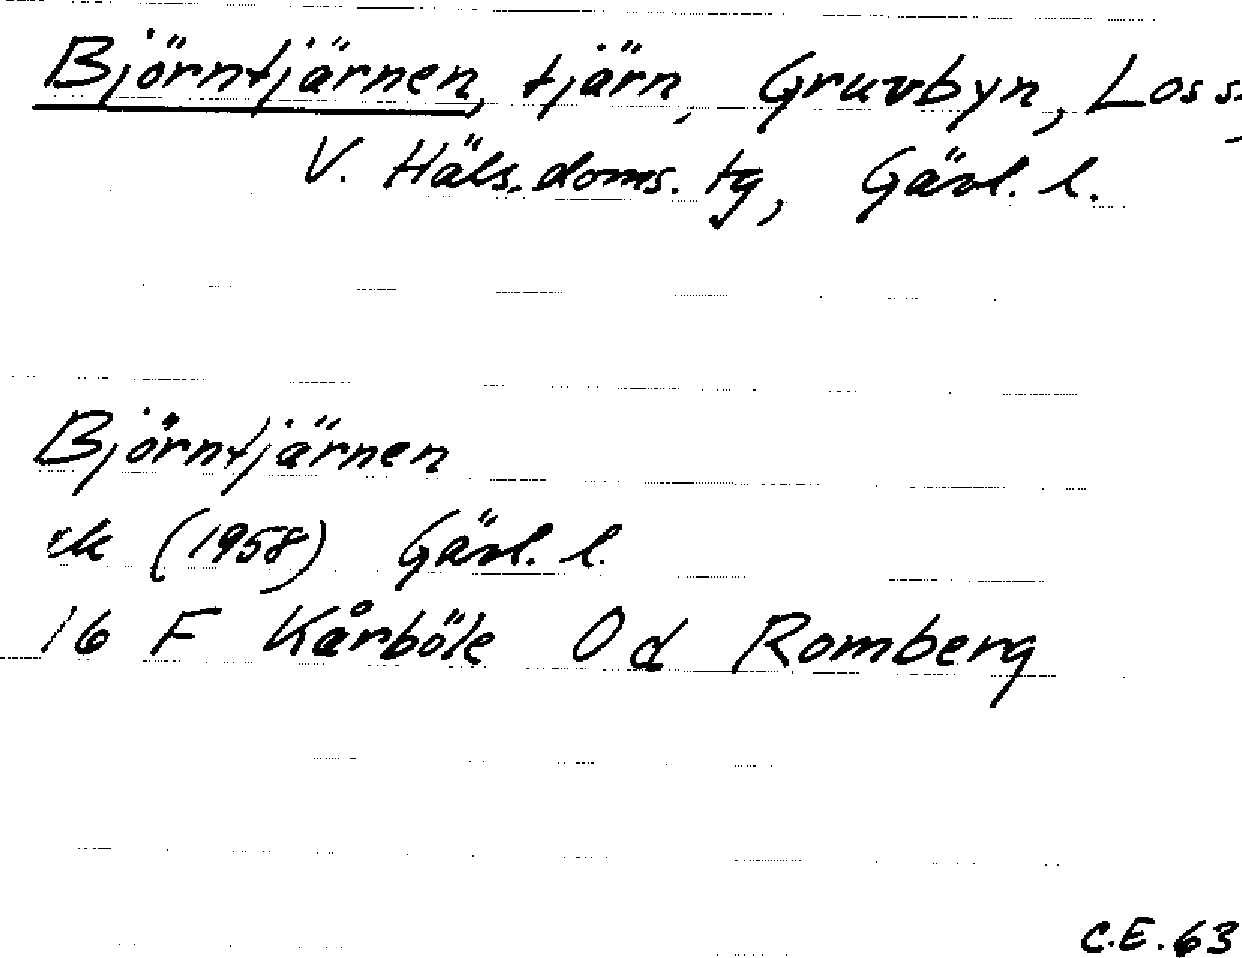 Björntjärnen, tjärn, Gruvbyn, Los s,
V. Häls. doms. tg, Gävl. l.
Björntjärnen
ek (1958) Gävl. l.
16 F Kårböle Od Romberg
C.E. 63